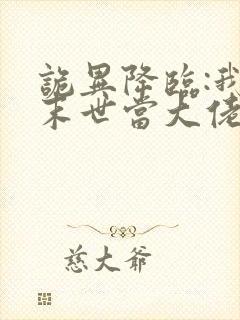 詭異降臨:我
末世當大佬
慈大爺